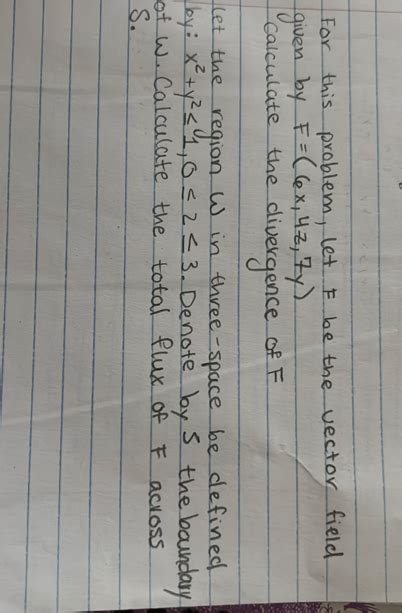 For this problem, let F be the vector field
given by F = (6x, 4z, 7y)
Calculate the divergence of F
Let the region W in three-space be defined
by: x² + y² ≤ 1, 0 ≤ z ≤ 3. Denote by S the boundary
of W. Calculate the total flux of F across
S.